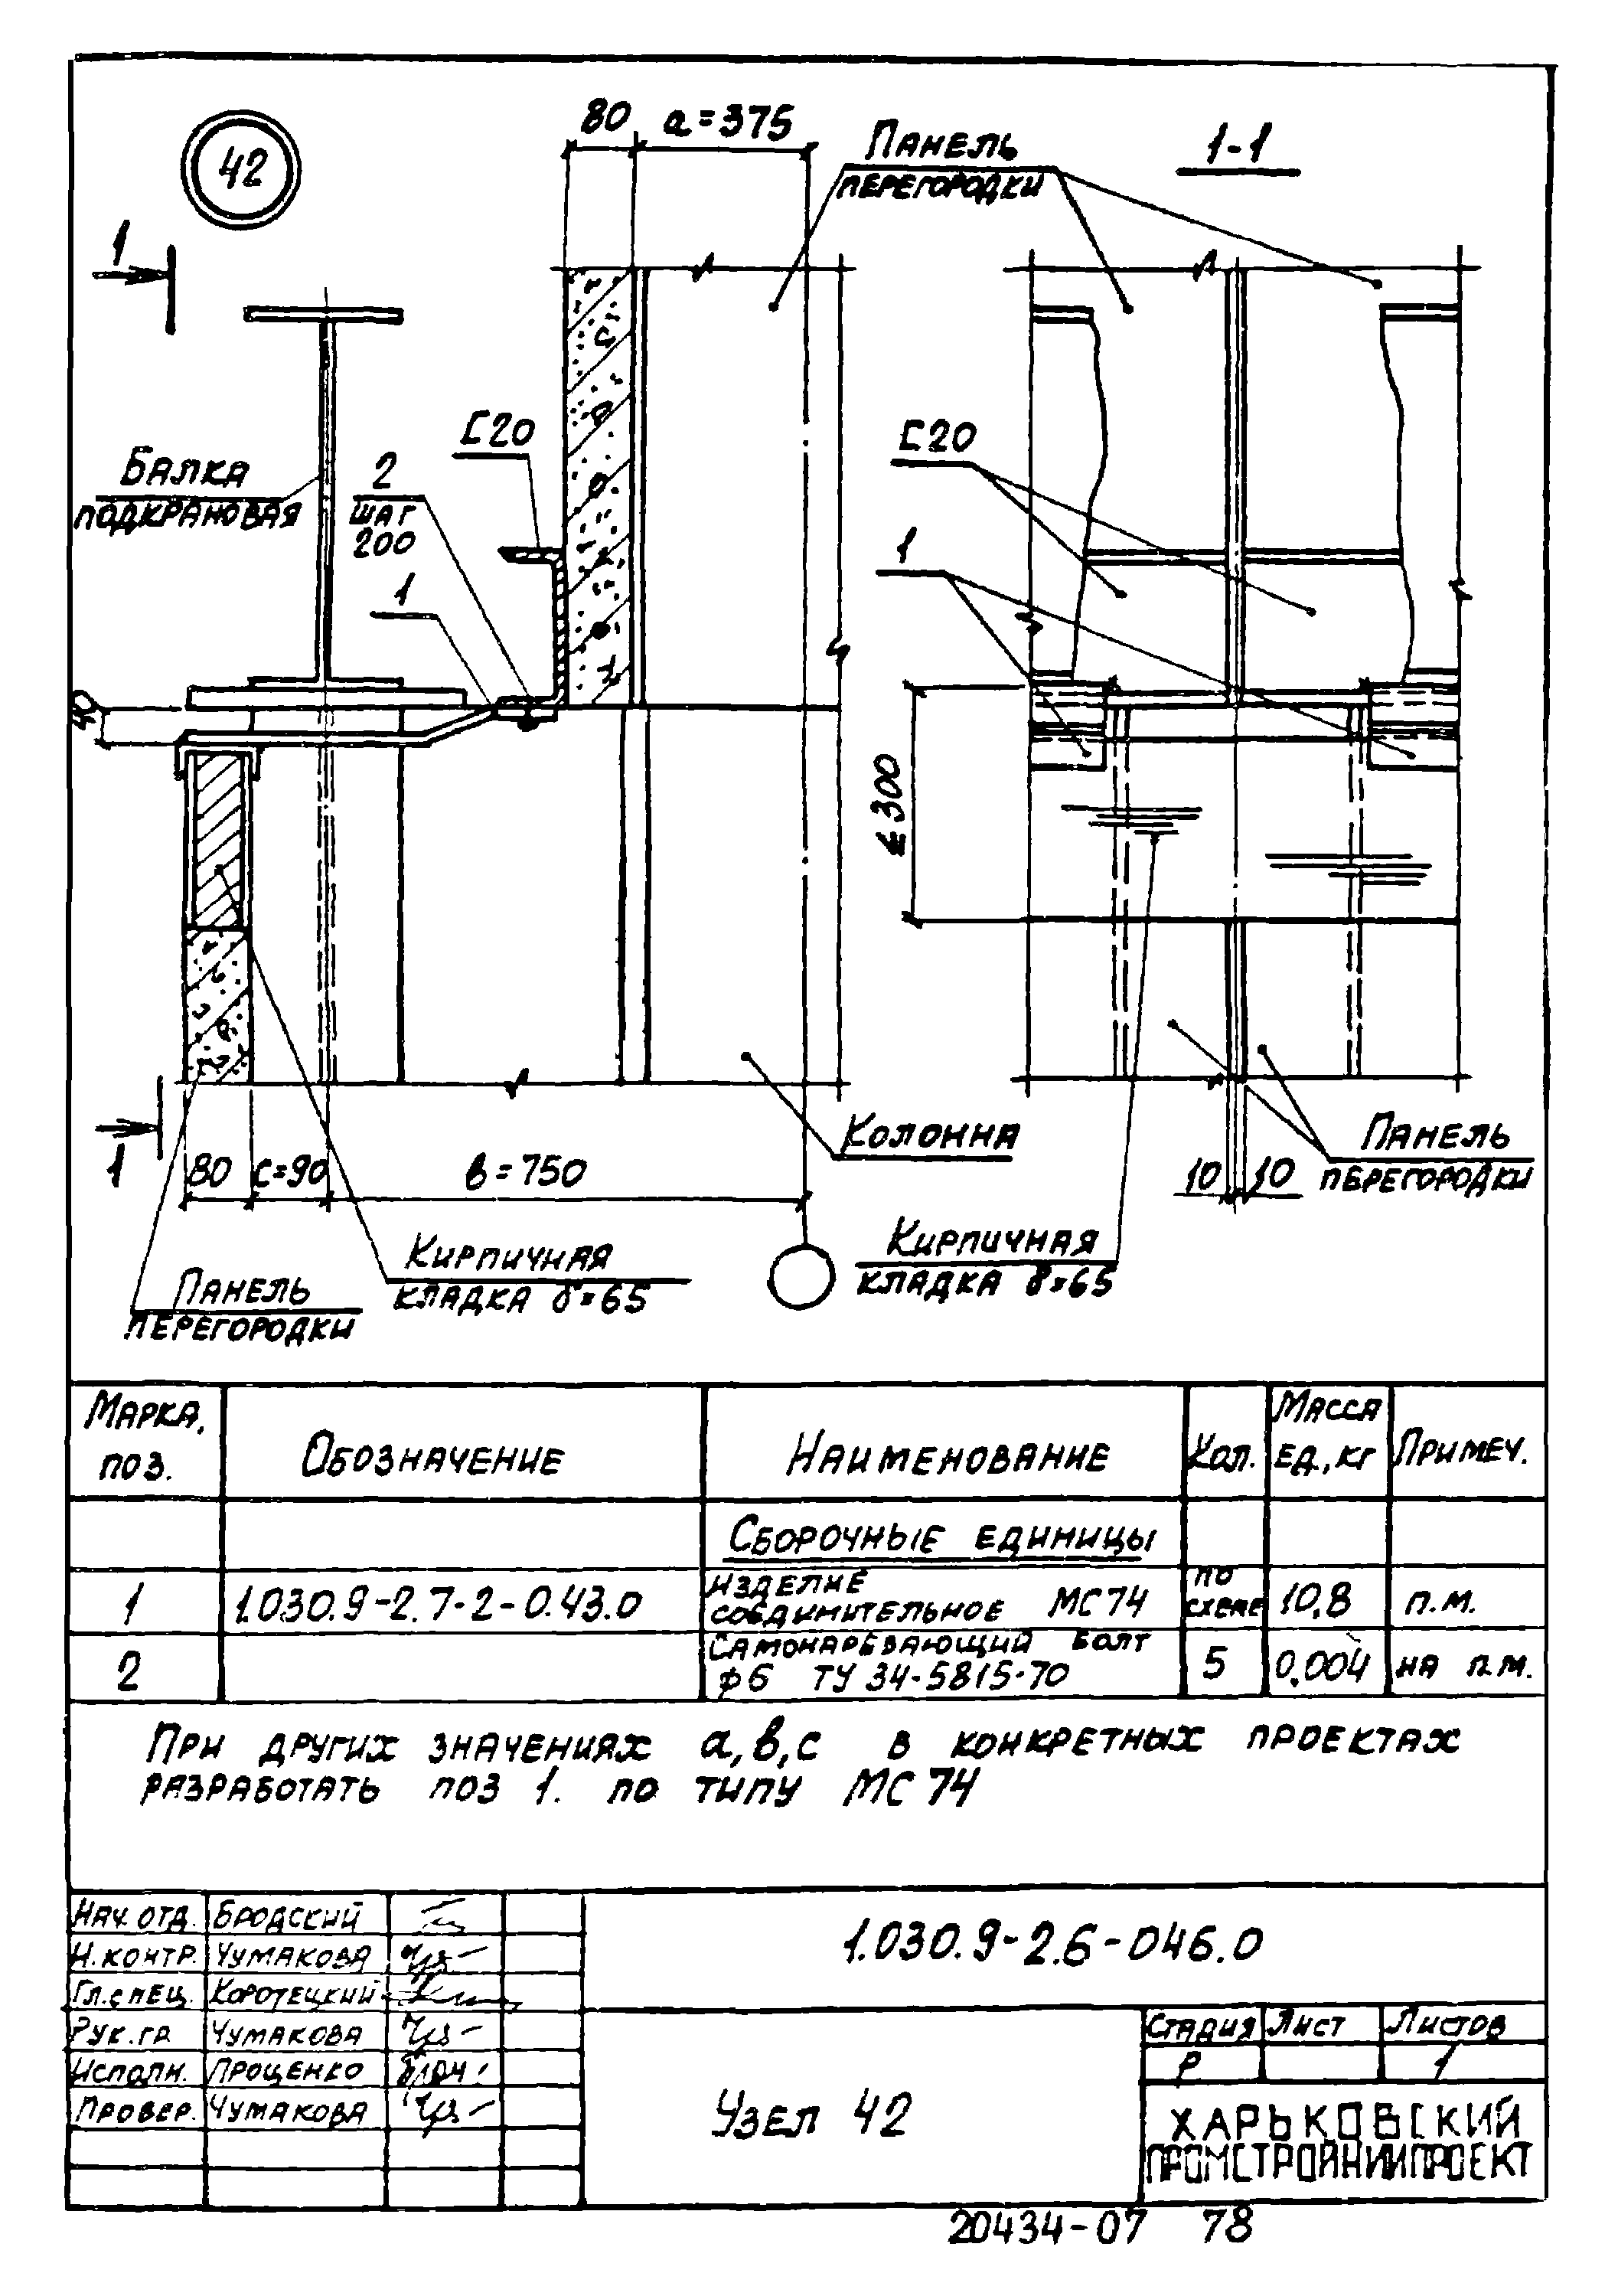 42
80 а=375
Панель
перегородки
1-1
1
[20
[20
Балка
подкрановая
2
шаг
200
1
1
40
≤300
Колонна
Панель
перегородки
1
80 с=90 в=750
10 10
Кирпичная
кладка δ=65
Кирпичная
кладка δ=65
Панель
перегородки
Марка, поз.
Обозначение
Наименование
Кол.
Масса ед., кг
Примеч.
Сборочные единицы
1 1.030.9-2.7-2-0.43.0 Изделие соединительное МС74 по схеме 10,8 п.м.
2 Самонарезающий болт ф6 ТУ 34-5815-70 5 0,004 на п.м.
При других значениях а, в, с в конкретных проектах
разработать поз 1. по типу МС74
Нач. отд. Бродский
Н.контр. Чумакова
Гл.спец. Коротецкий
Рук.гр Чумакова
Исполн. Проценко
Провер. Чумакова
1.030.9-2.6-046.0
Узел 42
Стадия Лист Листов
Р 1
ХАРЬКОВСКИЙ
ПРОМСТРОЙНИИПРОЕКТ
20434-07 78